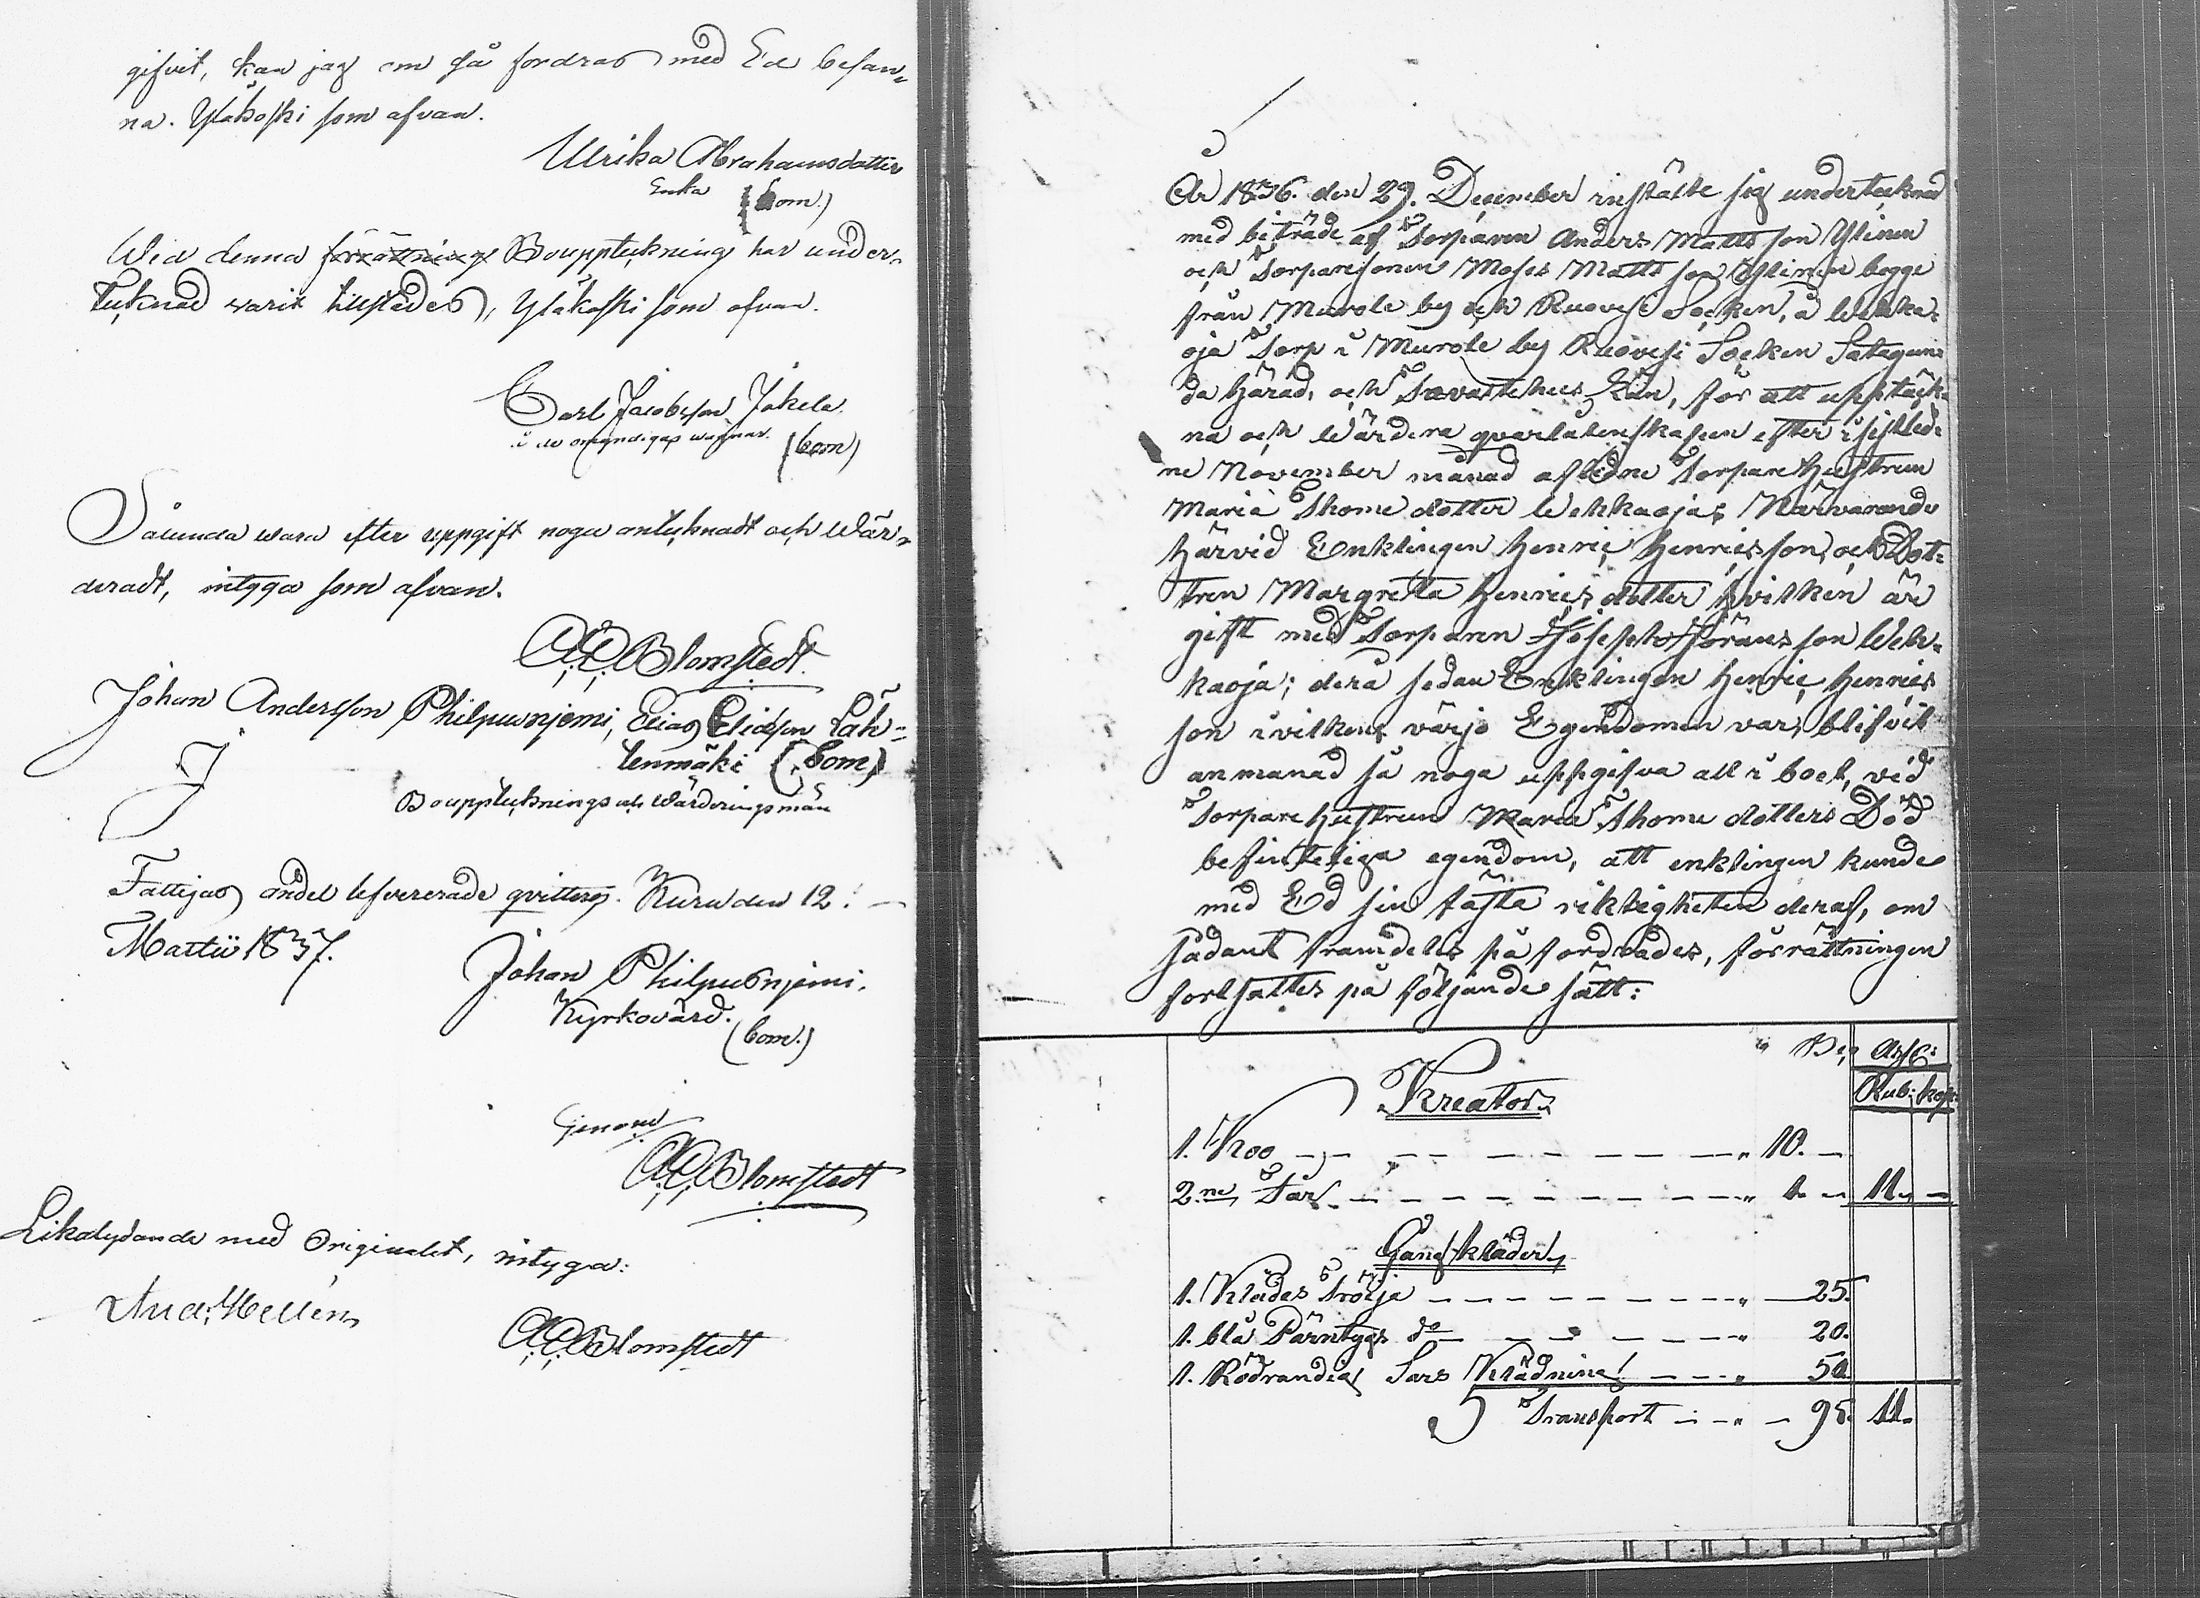 gifvit, kan jag om så fordras med Ed besan„
na. Yläkoski som ofvan.
Ulrika Abrahamsdotter
Enka (bom.)
Wid denna förrättning Bouppteckning har under„
tecknad warit tillstädes, Yläkoski som ofvan.
Carl Jacobsson Jäkelä.
i de omyndigas wägnar. (bom)
Sålunda wara efter uppgift noga antecknadt och Wär„
deradt, intyga som ofvan.
A: E: Blomstedt.
Johan Andersson Philpusnjemi, Elias Eliasson Läh„
tenmäki (bom)
Bouppteknings och Wärderingsmän
Fattigas andel lefvererade qvitteras. Kuru den 12:
Martii 1837.
Johan Philpusnjemi.
Kyrkovärd.
(bom.)
Genom
A: E: Blomstedt
Likalydande med Originalet, intyga:
And: Hellén
A: E: Blomstedt
År 1836. den 29. December instälte sig undertecknad
med biträde af Torparen Anders Matts son Ylinen
och Torparesonen Moses Matts son Ylinen begge
från Murole by och Ruovesi Socken, å Wehka„
oja Torp i Murole by Ruovesi Socken Satagun„
da härad, och Tavastehus Län, för att upptäck„
na och Wärdera qvarlåtenskapen efter i sistled„
ne November månad aflidne Torpare hustrun
Maria Thome dotter Wehkaoja, Närvarande
härvid Enklingen Henric Henricsson, och Dot„
tren Margreta Henrics dotter hvilken är
gift med Torparen Joseph Jöransson Weh„
kaoja; derå sedan Enklingen Henric Henrics
son i vilkens värjo Egendomen var, blifvit
anmanad så noga uppgifva all i boet, vid
Torpare hustrun Maria Thome dotters Död
befinteliga egendom, att enklingen kunde
med Ed sin fästa riktigheten deraf, om
sådant framdeles på fordrades, förrättningen
fortsattes på följande sätt:
B: Ass:
Rub: kop:
Kreatur
1. Koo „ 10. —
2.ne Får „ 1. — 11. —
Gång kläder
1. Klädes Tröija „ 25.
1. blå Pärntygs do „ 20.
1. Rödrandig Sars Klädning „ 50
Transport „ 95. 11.